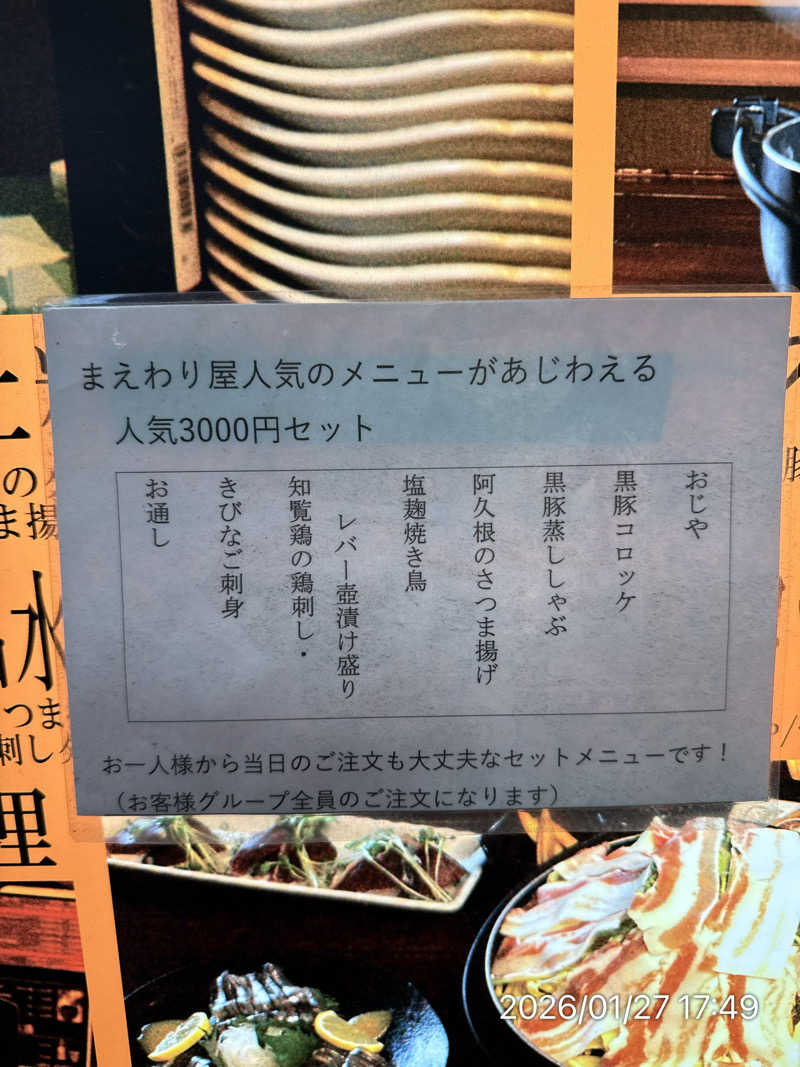 まえわり屋人気のメニューがあじわえる
人気3000円セット
お通し
きびなご刺身
知覧鶏の鶏刺し・
レバー壺漬け盛り
塩麹焼き鳥
阿久根のさつま揚げ
黒豚蒸ししゃぶ
黒豚コロッケ
おじや
お一人様から当日のご注文も大丈夫なセットメニューです！
（お客様グループ全員のご注文になります）
の
ま揚
つま
刺し
2026/01/27 17:49